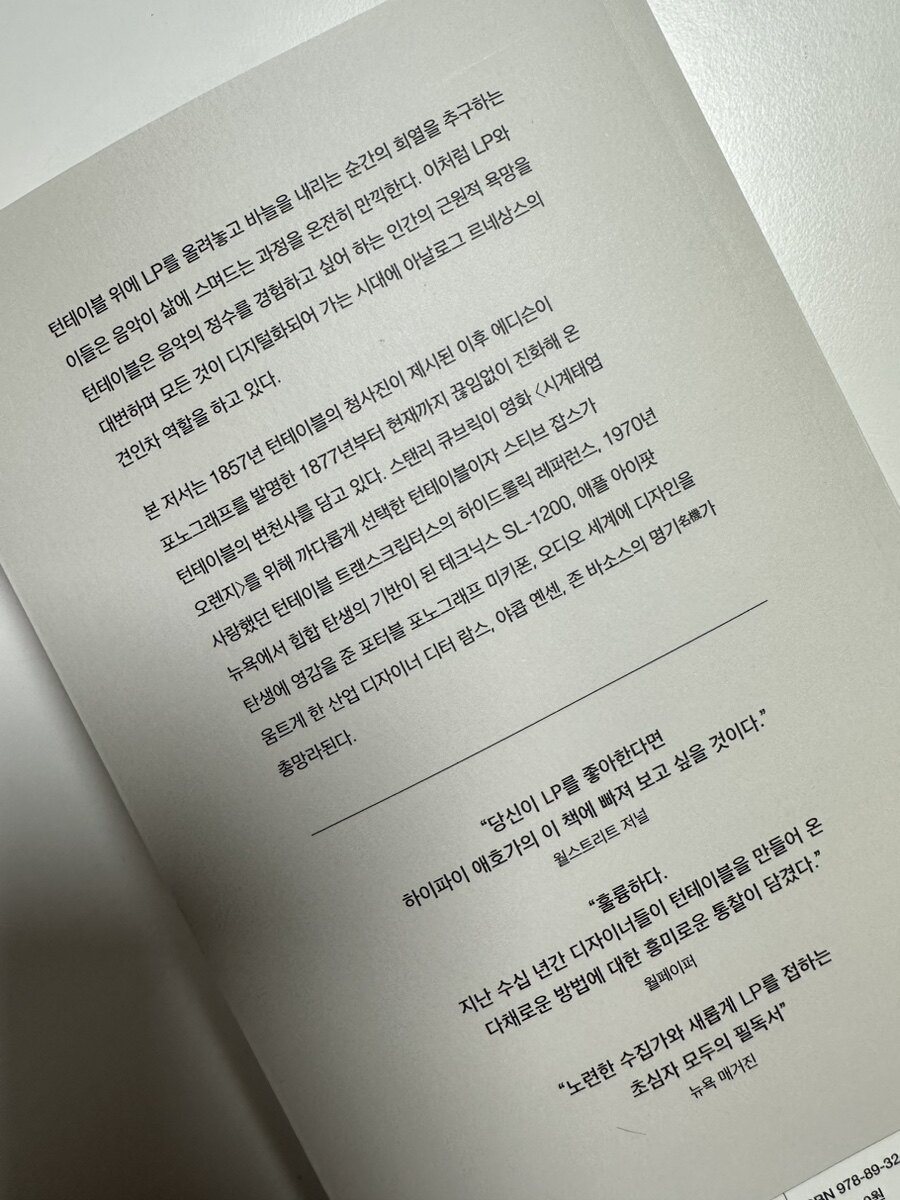 턴테이블 위에 LP를 올려놓고 바늘을 내리는 순간의 희열을 추구하는
이들은 음악이 삶에 스며드는 과정을 온전히 만끽한다. 이처럼 LP와
턴테이블은 음악의 정수를 경험하고 싶어 하는 인간의 근원적 욕망을
대변하며 모든 것이 디지털화되어 가는 시대에 아날로그 르네상스의
견인차 역할을 하고 있다.
본 저서는 1857년 턴테이블의 청사진이 제시된 이후 에디슨이
포노그래프를 발명한 1877년부터 현재까지 끊임없이 진화해 온
턴테이블의 변천사를 담고 있다. 스탠리 큐브릭이 영화 〈시계태엽
오렌지〉를 위해 까다롭게 선택한 턴테이블이자 스티브 잡스가
사랑했던 턴테이블 트랜스크립터스의 하이드롤릭 레퍼런스, 1970년
뉴욕에서 힙합 탄생의 기반이 된 테크닉스 SL-1200, 애플 아이팟
탄생에 영감을 준 포터블 포노그래프 미키폰, 오디오 세계에 디자인을
움트게 한 산업 디자이너 디터 람스, 야콥 옌센, 존 바소스의 명기名機가
총망라된다.
“당신이 LP를 좋아한다면
하이파이 애호가의 이 책에 빠져 보고 싶을 것이다.”
월스트리트 저널
“훌륭하다.
지난 수십 년간 디자이너들이 턴테이블을 만들어 온
다채로운 방법에 대한 흥미로운 통찰이 담겼다.”
월페이퍼
“노련한 수집가와 새롭게 LP를 접하는
초심자 모두의 필독서”
뉴욕 매거진
978-89-32